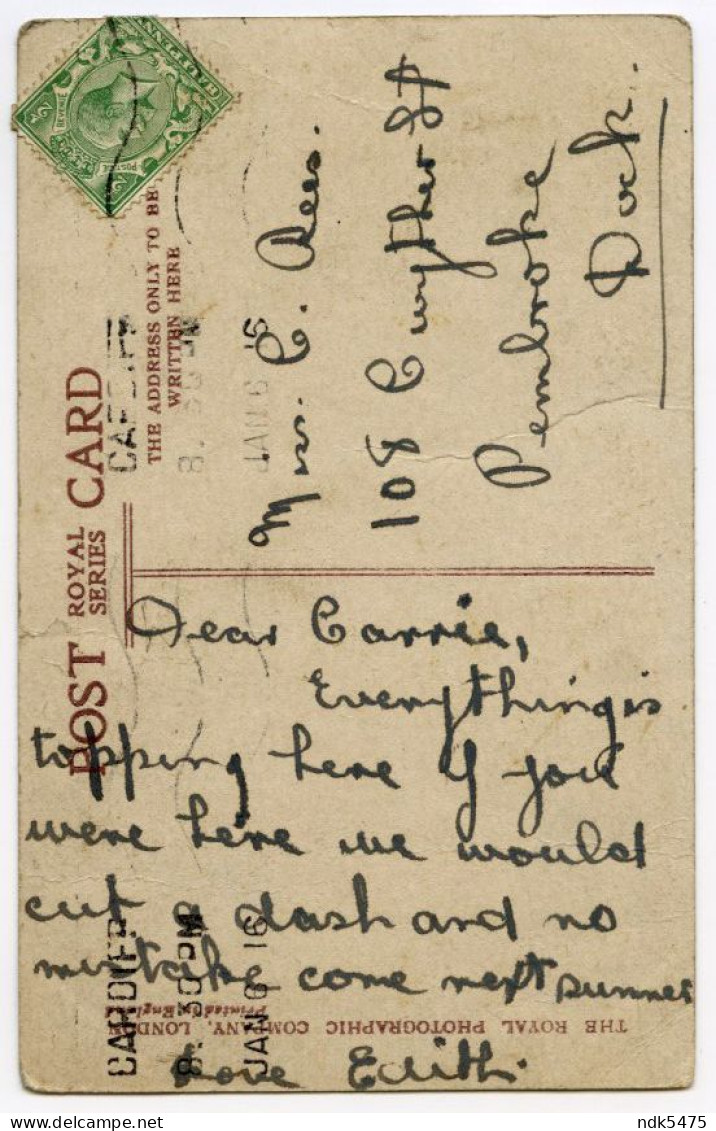 POST ROYAL SERIES CARD
THE ADDRESS ONLY TO BE
WRITTEN HERE
HALFPENNY
POSTAGE REVENUE
CARDIFF
8. 30 PM
JAN 6 16
Miss. C. Rees.
108 Gwyther St
Pembroke
Dock.
Dear Carrie,
Everything is
topping here if you
were here we would
cut a dash and no
mistake come next summer
Love Edith.
CARDIFF
8. 30 PM
JAN 6 16
THE ROYAL PHOTOGRAPHIC COMPANY, LONDON
Printed in England
ndk5475